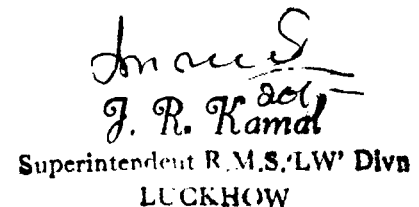 J. R. Kamal
Superintendent R.M.S.'LW' Divn
LUCKHOW